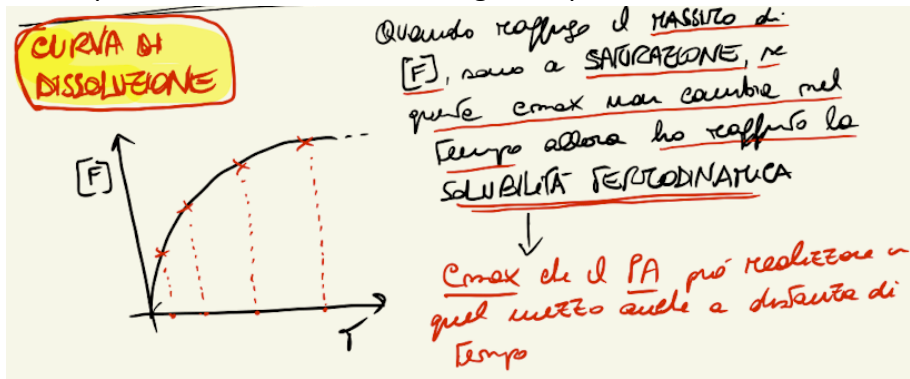 CURVA DI
DISSOLUZIONE
[F]
T
Quando raggiungo il MASSIMO di
[F], sono a SATURAZIONE, se
queste cmax non cambia nel
Tempo allora ho raggiunto la
SOLUBILITÀ TERMODINAMICA
Cmax che il PA può realizzare in
quel mezzo anche a distanza di
Tempo